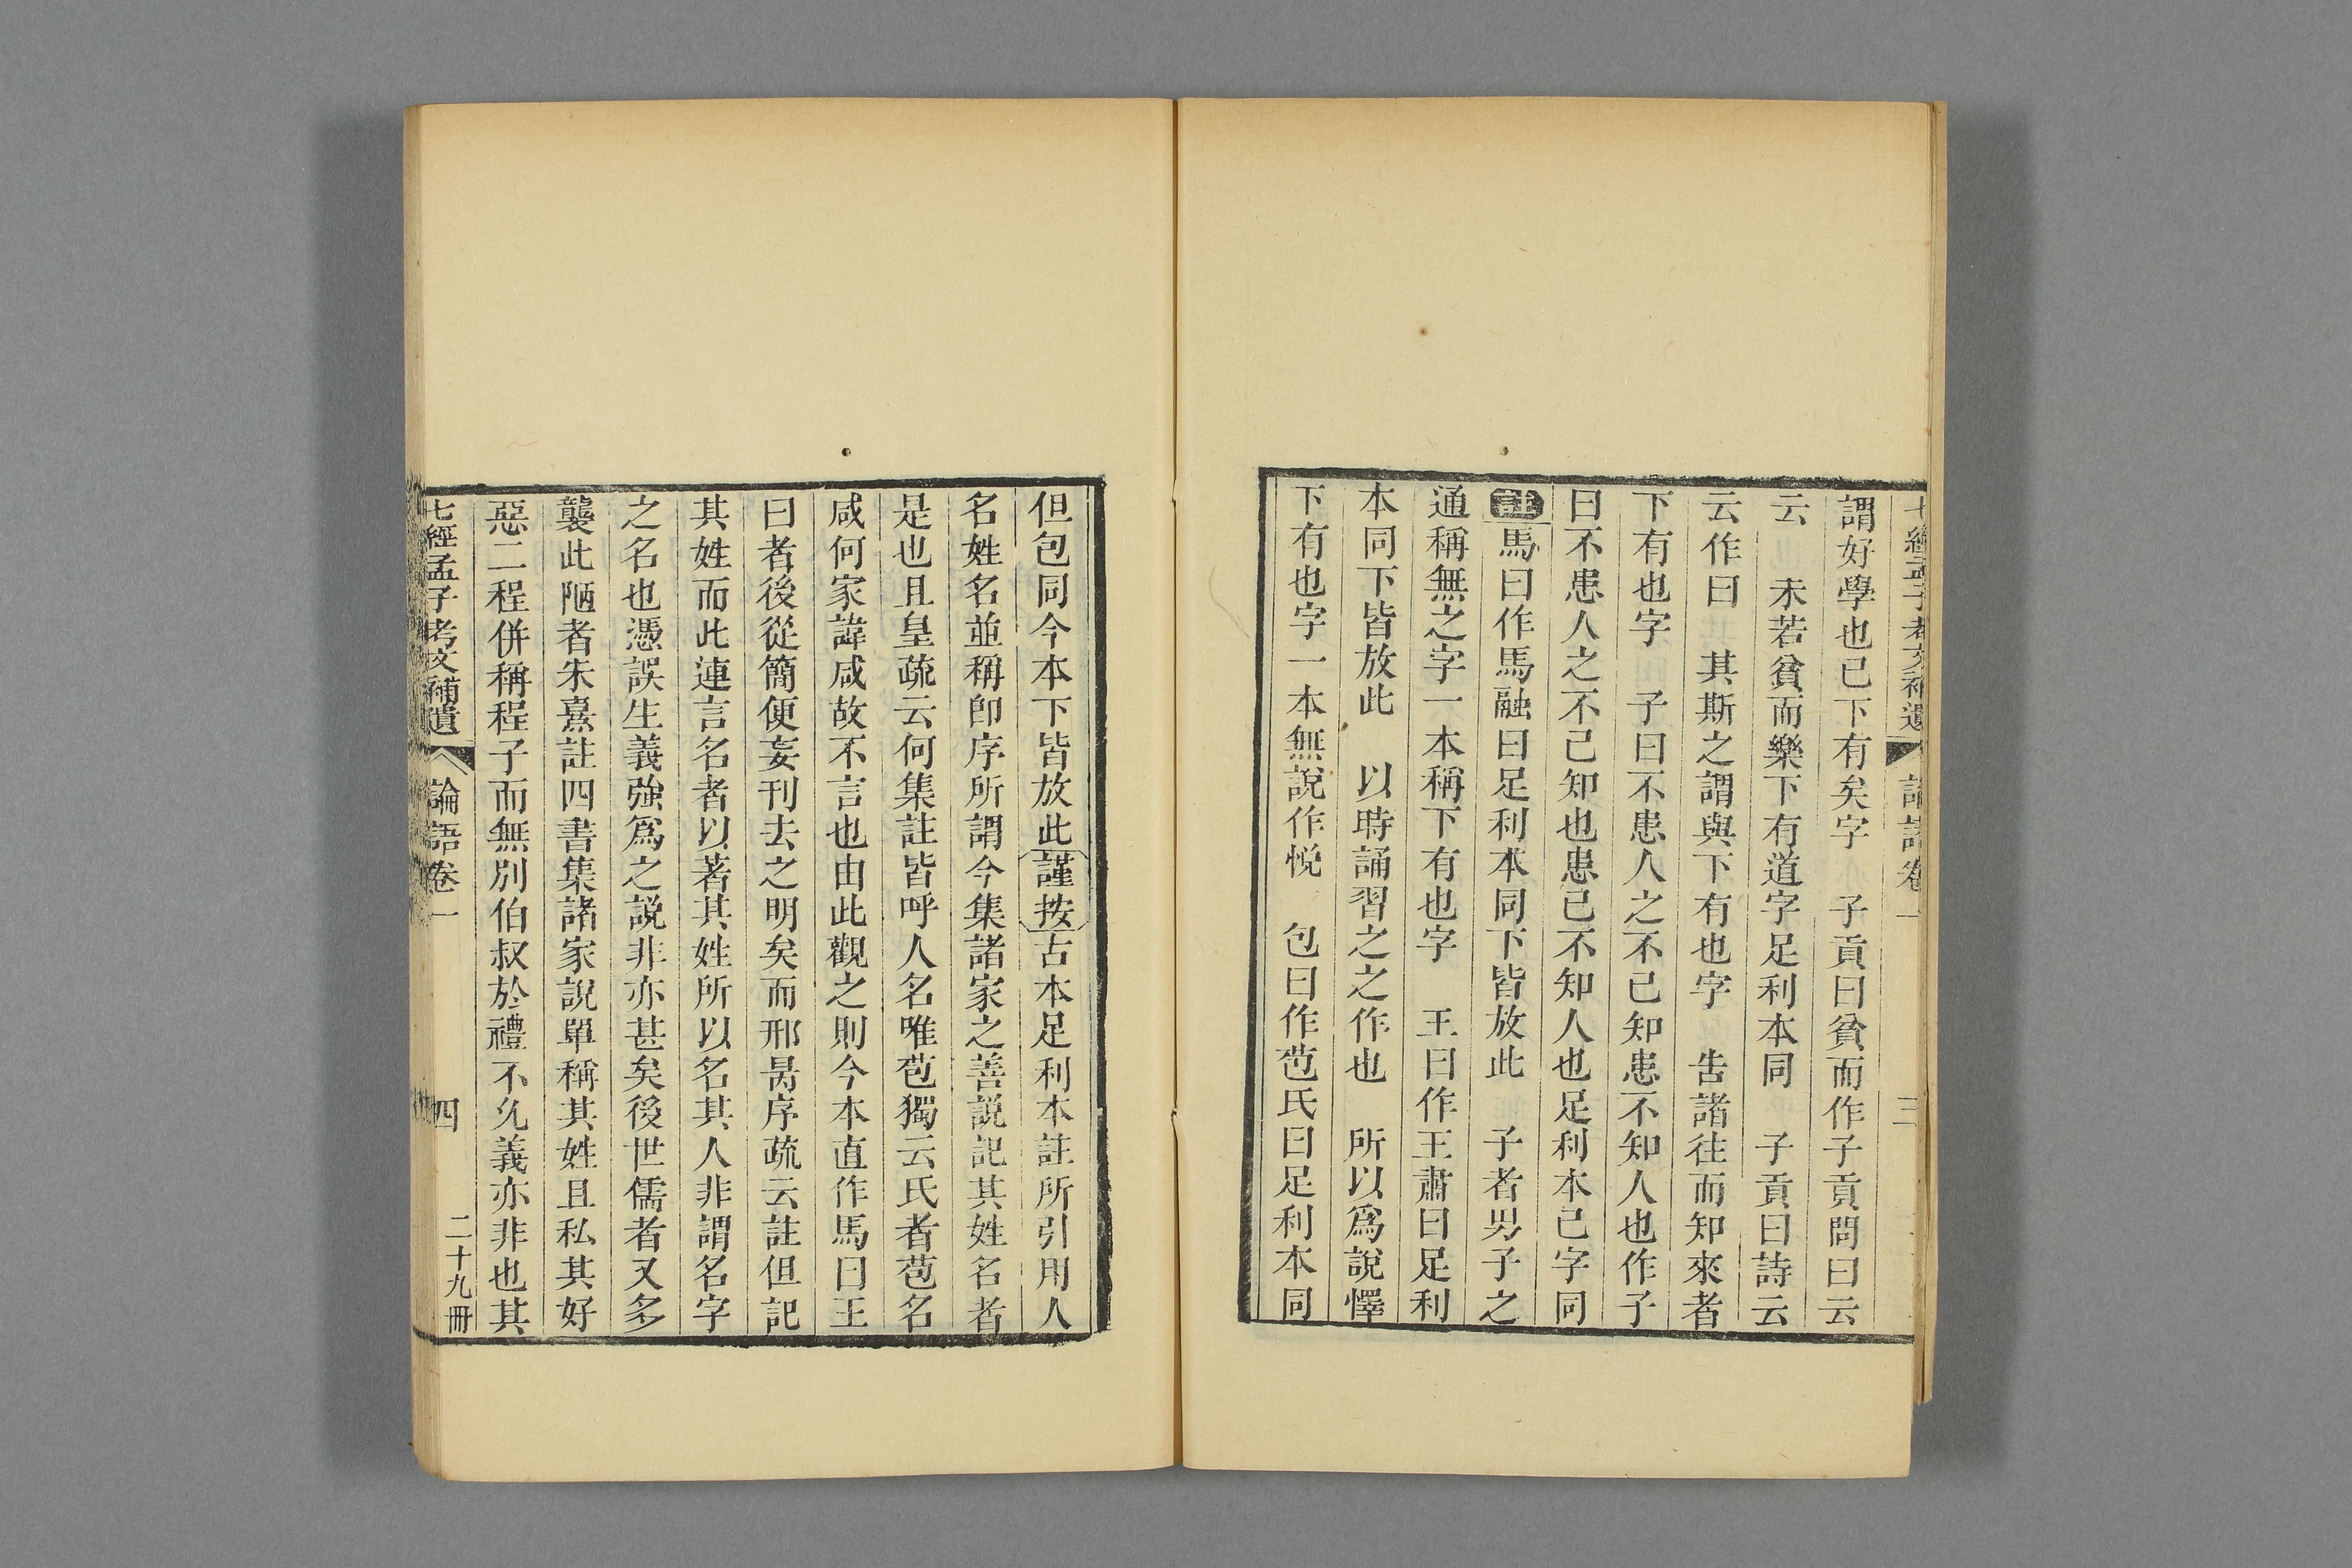 七經孟子考文補遺 論語卷一 三
謂好學也已下有矣字 子貢曰貧而作子貢問曰云
云 未若貧而樂下有道字足利本同 子貢曰詩云
云作曰 其斯之謂與下有也字 告諸往而知來者
下有也字 子曰不患人之不己知患不知人也作子
曰不患人之不己知也患己不知人也足利本己字同
註馬曰作馬融曰足利本同下皆放此 子者男子之
通稱無之字一本稱下有也字 王曰作王肅曰足利
本同下皆放此 以時誦習之之作也 所以爲說懌
下有也字一本無說作悅 包曰作苞氏曰足利本同
但包同今本下皆放此謹按古本足利本註所引用人
名姓名並稱卽序所謂今集諸家之善說記其姓名者
是也且皇疏云何集註皆呼人名唯苞獨云氏者苞名
咸何家諱咸故不言也由此觀之則今本直作馬曰王
曰者後從簡便妄刊去之明矣而邢昺序疏云註但記
其姓而此連言名者以著其姓所以名其人非謂名字
之名也憑誤生義強爲之說非亦甚矣後世儒者又多
襲此陋者朱熹註四書集諸家說單稱其姓且私其好
惡二程併稱程子而無別伯叔於禮不允義亦非也其
七經孟子考文補遺 論語卷一 四 二十九冊